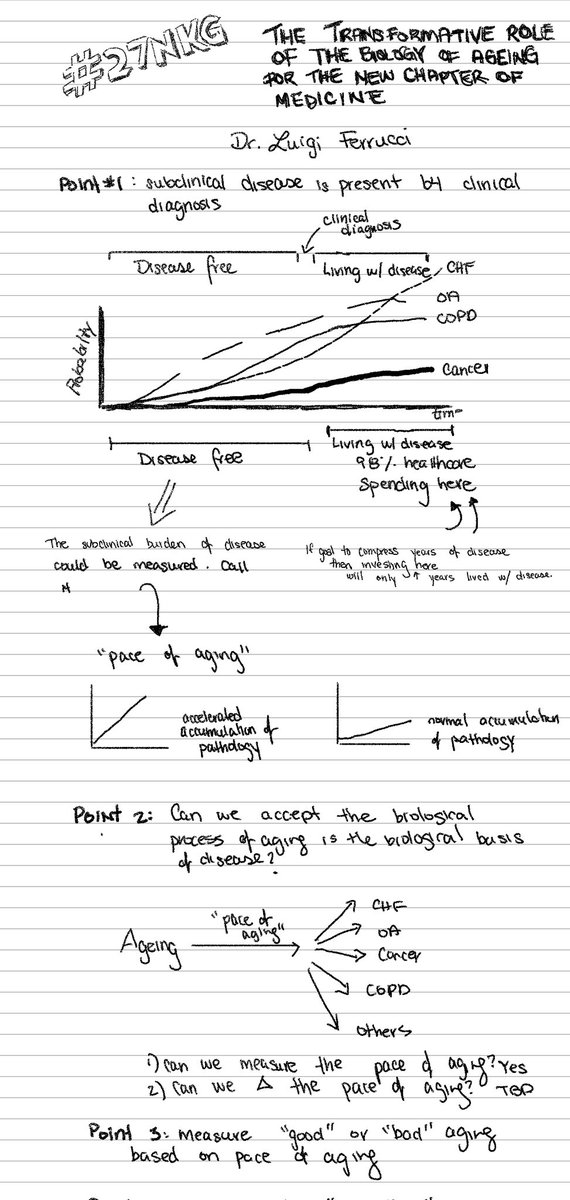 #27NKG
THE TRANSFORMATIVE ROLE
OF THE BIOLOGY OF AGEING
FOR THE NEW CHAPTER OF
MEDICINE
Dr. Luigi Ferrucci
Point #1: subclinical disease is present by clinical
diagnosis
clinical
diagnosis
Disease free
Living w/ disease
CHF
OA
COPD
Cancer
Probability
time
Disease free
Living w/ disease
98% healthcare
Spending here
The subclinical burden of disease
could be measured. Call
it
If goal to compress years of disease
then investing here
will only ↑ years lived w/ disease.
"pace of aging"
accelerated
accumulation of
pathology
normal accumulation
of pathology
Point 2: Can we accept the biological
process of aging is the biological basis
of disease?
Ageing
"pace of
aging"
CHF
OA
Cancer
COPD
others
1) Can we measure the pace of aging? Yes
2) Can we Δ the pace of aging? TBD
Point 3: Measure "good" or "bad" aging
based on pace of aging